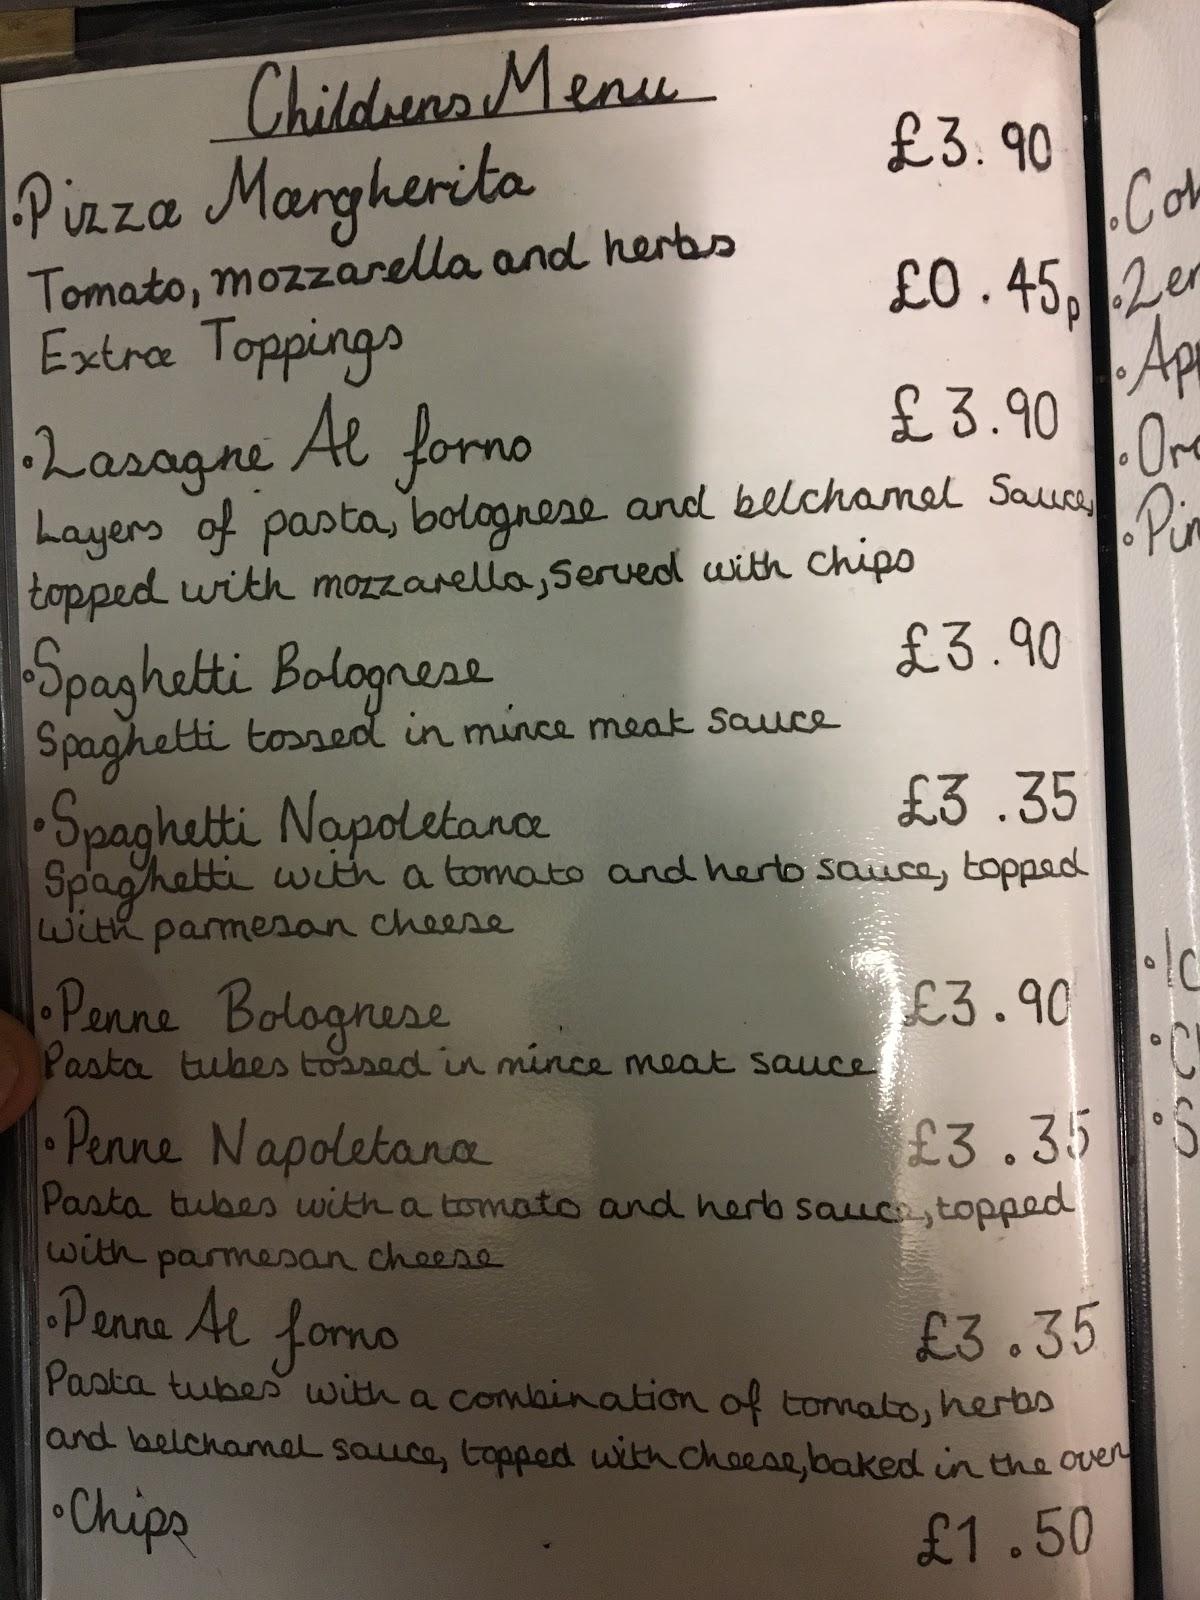 Childrens Menu
• Pizza Margherita £3.90
Tomato, mozzarella and herbs
Extra Toppings £0.45p
• Lasagne Al forno £3.90
Layers of pasta, bolognese and belchamel Sauce,
topped with mozzarella, Served with chips
• Spaghetti Bolognese £3.90
Spaghetti tossed in mince meat sauce
• Spaghetti Napoletana £3.35
Spaghetti with a tomato and herb sauce, topped
with parmesan cheese
• Penne Bolognese £3.90
Pasta tubes tossed in mince meat sauce
• Penne Napoletana £3.35
Pasta tubes with a tomato and herb sauce, topped
with parmesan cheese
• Penne Al forno £3.35
Pasta tubes with a combination of tomato, herbs
and belchamel sauce, topped with cheese, baked in the oven
• Chips £1.50